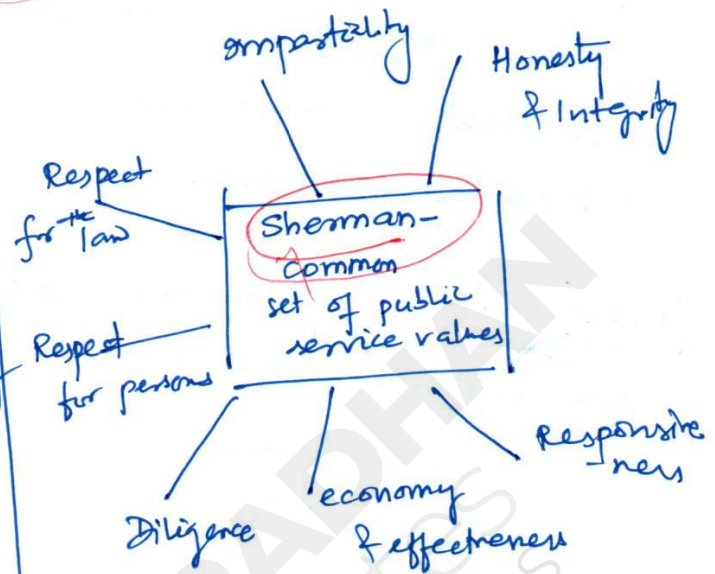 Impartiality
Honesty
& Integrity
Respect
for the law
Sherman-
common
set of public
service values
Respect
for persons
Responsive
-ness
Diligence
economy
& effectiveness
ADHAN